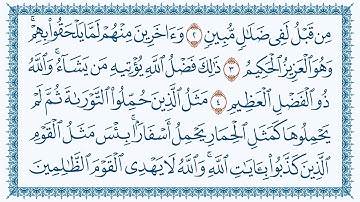 مِن قَبْلُ لَفِى ضَلَٰلٍ مُّبِينٍ ٢ وَءَاخَرِينَ مِنْهُمْ لَمَّا يَلْحَقُوا۟ بِهِمْ ۚ
وَهُوَ ٱلْعَزِيزُ ٱلْحَكِيمُ ٣ ذَٰلِكَ فَضْلُ ٱللَّهِ يُؤْتِيهِ مَن يَشَآءُ ۚ وَٱللَّهُ
ذُو ٱلْفَضْلِ ٱلْعَظِيمِ ٤ مَثَلُ ٱلَّذِينَ حُمِّلُوا۟ ٱلتَّوْرَىٰةَ ثُمَّ لَمْ
يَحْمِلُوهَا كَمَثَلِ ٱلْحِمَارِ يَحْمِلُ أَسْفَارًۢا ۚ بِئْسَ مَثَلُ ٱلْقَوْمِ
ٱلَّذِينَ كَذَّبُوا۟ بِـَٔايَٰتِ ٱللَّهِ ۚ وَٱللَّهُ لَا يَهْدِى ٱلْقَوْمَ ٱلظَّٰلِمِينَ